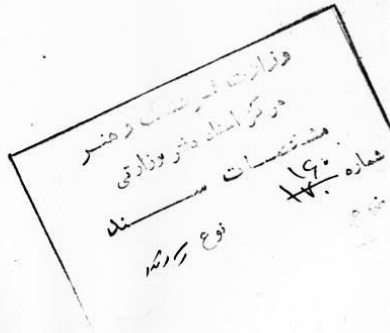 وزارت فرهنگ و هنر
مرکز اسناد دفتر وزارتی
مشخصات سند
شماره ۱۷۰ ۱۶۰
نوع